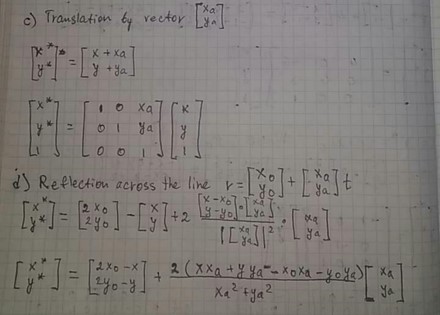 c) Translation by vector [xa ya]
[x* y*]* = [x + xa y + ya]
[x* y* 1] = [1 0 xa 0 1 ya 0 0 1] [x y 1]
d) Reflection across the line r = [x0 y0] + [xa ya] t
[x* y*] = [2x0 2y0] - [x y] + 2 [x-x0 y-y0]•[xa ya] / |[xa ya]|² • [xa ya]
[x* y*] = [2x0-x 2y0-y] + 2(xxa + yya - x0xa - y0ya) / xa² + ya² [xa ya]